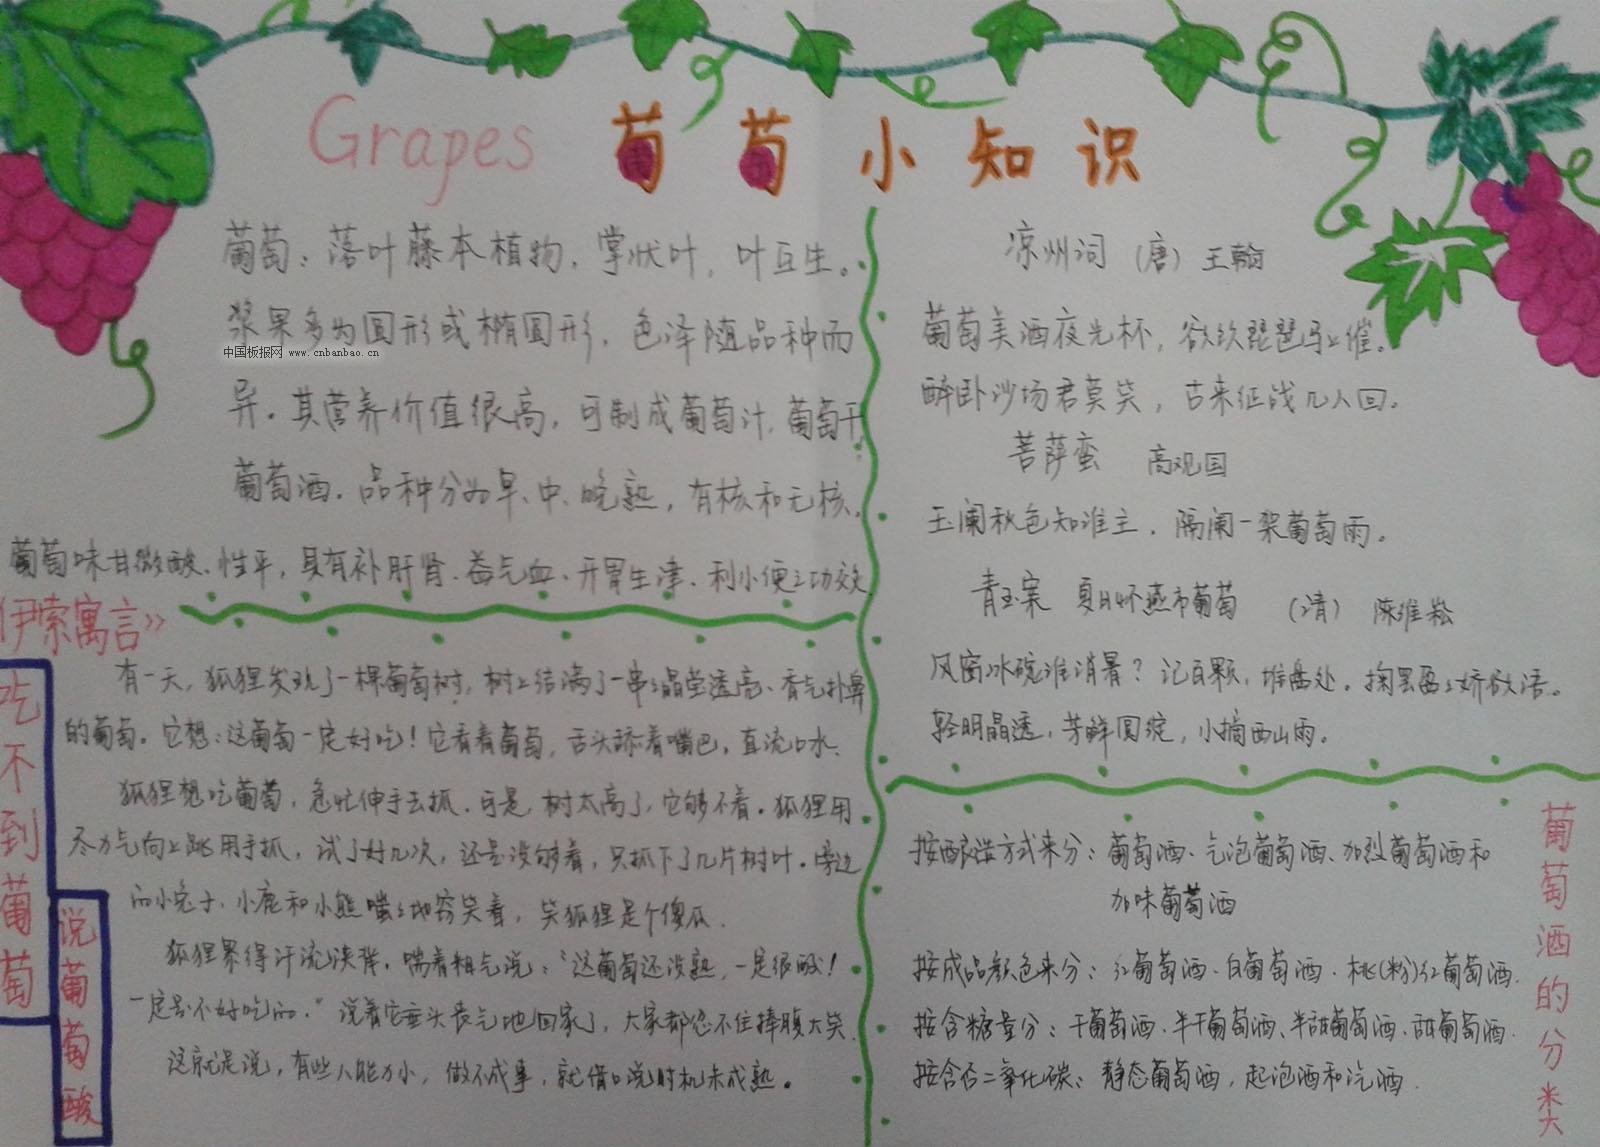 Grapes 葡萄小知识
葡萄：落叶藤本植物，掌状叶，叶互生。
浆果多为圆形或椭圆形，色泽随品种而
中国板报网 www.cnbanbao.cn
异。其营养价值很高，可制成葡萄汁，葡萄干，
葡萄酒。品种分为早、中、晚熟，有核和无核。
葡萄味甘微酸、性平，具有补肝肾、益气血、开胃生津、利小便之功效
伊索寓言》
吃不到葡萄
说葡萄酸
有一天，狐狸发现了一棵葡萄树，树上结满了一串串晶莹透亮、香气扑鼻
的葡萄。它想：这葡萄一定好吃！它看着葡萄，舌头舔着嘴巴，直流口水。
狐狸想吃葡萄，急忙伸手去抓，可是，树太高了，它够不着。狐狸用
尽力气向上跳用手抓，试了好几次，还是没够着，只抓下了几片树叶。旁边
的小兔子、小鹿和小熊嗤嗤地窃笑着，笑狐狸是个傻瓜。
狐狸累得汗流浃背，喘着粗气说：“这葡萄还没熟，一定很酸！
一定是不好吃的。”说着它垂头丧气地回家了，大家都忍不住捧腹大笑。
这就是说，有些人能力小，做不成事，就借口说时机未成熟。
凉州词 （唐） 王翰
葡萄美酒夜光杯，欲饮琵琶马上催。
醉卧沙场君莫笑，古来征战几人回。
菩萨蛮 高观国
玉阑秋色知谁主，隔阑一架葡萄雨。
青玉案 夏日怀燕市葡萄 （清） 陈维崧
风窗冰碗谁消暑？记百颗，堆盘处。掬罢西上娇欲语。
轻明晶透，芳鲜圆绽，小摘西山雨。
按酿造方式来分：葡萄酒、气泡葡萄酒、加烈葡萄酒和
加味葡萄酒
按成品颜色来分：红葡萄酒、白葡萄酒、桃（粉）红葡萄酒.
按含糖量分：干葡萄酒、半干葡萄酒、半甜葡萄酒、甜葡萄酒.
按含否二氧化碳：静态葡萄酒，起泡酒和汽酒.
葡萄酒的分类